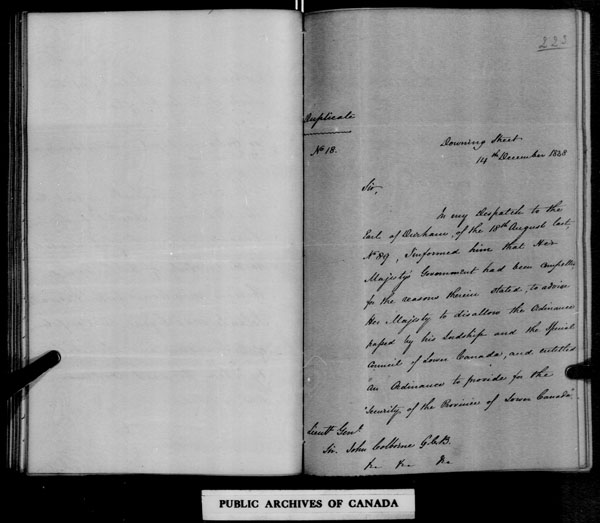 223
Duplicate
No 18.
Downing Street
14th December 1838
Sir,
In my Despatch to the
Earl of Durham, of the 18th August last,
No 89, I informed him that Her
Majesty's Government had been compelled
for the reasons therein stated, to advise
Her Majesty to disallow the Ordinance
passed by his Lordship and the Special
Council of Lower Canada, and entitled
"An Ordinance to provide for the
"Security of the Province of Lower Canada."
Lieutt Genl
Sir John Colborne G.C.B.
&c &c &c
PUBLIC ARCHIVES OF CANADA